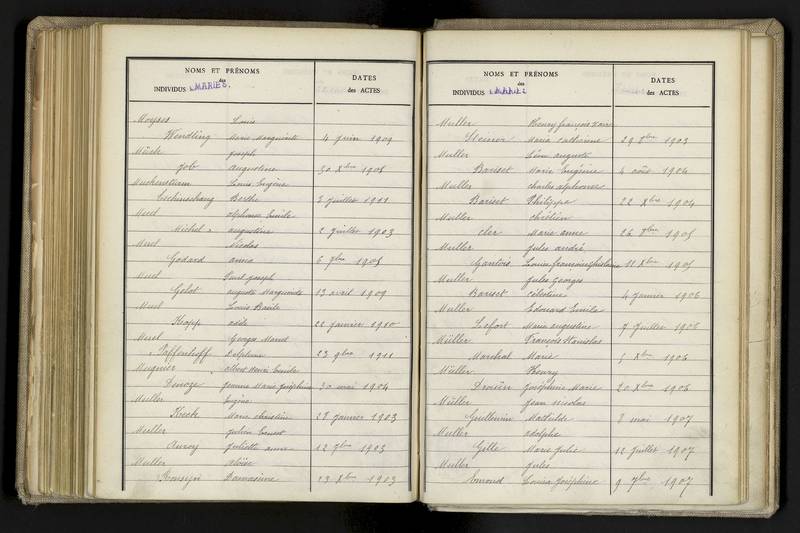 NOMS ET PRÉNOMS
des
INDIVIDUS MARIÉS.
DATES
des ACTES
Moyses Louis
Wendling Marie Marguerite 4 juin 1909
Mück Joseph
Job Augustine 30 Xbre 1905
Muckensturm Louis Eugène
Eschenschang Berthe 3 juillet 1911
Muel alphonse Emile
Michel augustine 2 juillet 1903
Muel Nicolas
Godard anna 6 9bre 1905
Muel Paul Joseph
Gelot auguste Marguerite 13 avril 1909
Muel Louis Basile
Kopp odile 22 janvier 1910
Muel Georges Marcel
Paffenhoff Delphine 23 9bre 1911
Mugnier albert Henri Emile
Denoze Jeanne Marie Joséphine 30 mai 1904
Muller Eugène
Keck Marie Christine 28 janvier 1903
Mueller Julien Ernest
Auroy Juliette anna 12 9bre 1903
Muller aloïse
Damasine 13 Xbre 1903
NOMS ET PRÉNOMS
des
INDIVIDUS MARIÉS
DATES
des ACTES
Muller Henry François Xavier
Steiner Marie Catherine 29 8bre 1903
Muller Léon auguste
Bariset Marie Eugénie 4 août 1904
Muller charles alphonse
Bariset Philippe 22 Xbre 1904
Muller chrétien
cler Marie anne 26 8bre 1905
Muller Jules andré
Gantois Louise françoise Ghislaine 11 Xbre 1905
Muller Jules Georges
Bariset célestine 4 janvier 1906
Muller Edouard Emile
Lefort Marie augustine 7 juillet 1906
Müller François Stanislas
Marchal Marie 5 Xbre 1906
Müller Henry
Drouin Joséphine Marie 20 Xbre 1906
Müller Jean Nicolas
Guillemin Mathilde 8 mai 1907
Muller adolphe
Gille Marie Julie 12 juillet 1907
Muller Jules
Louisa Joséphine 9 9bre 1907